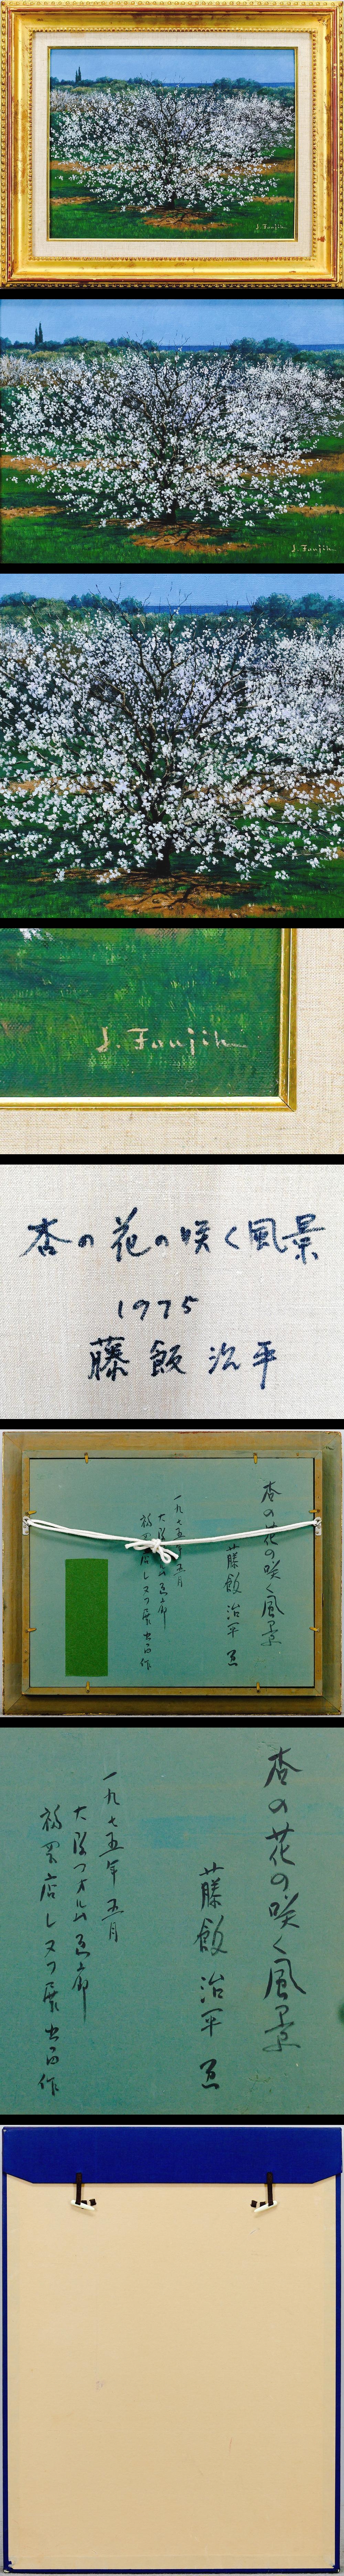 J. Foujih
J. Foujih
J. Foujih
杏の花の咲く風景
1975
藤飯治平
杏の花の咲く風景
藤飯治平 画
一九七五年五月
大阪フォルム画廊
福岡店レスプ展出品作
杏の花の咲く風景
藤飯治平 画
一九七五年五月
大阪フォルム画廊
福岡店 展出品作